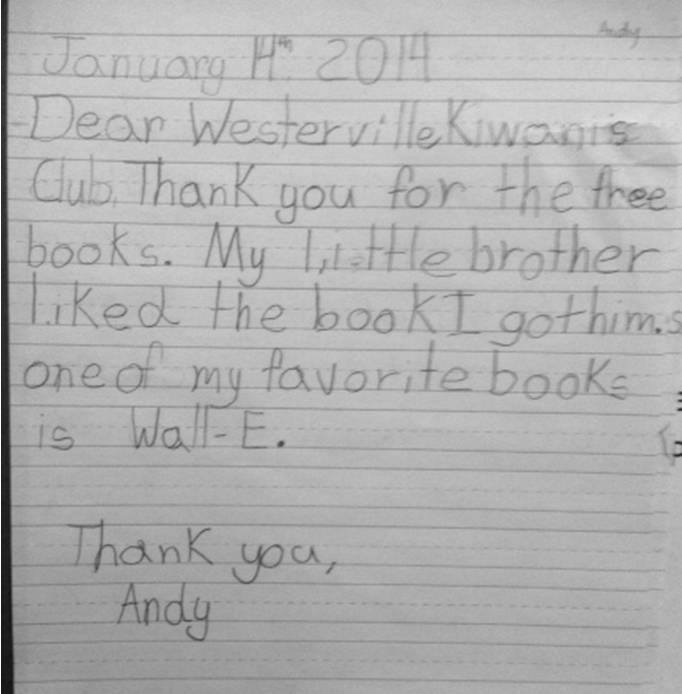 Andy
January 14th 2014
Dear Westerville Kiwanis
Club, Thank you for the free
books. My little brother
liked the book I got him.
one of my favorite books
is Wall-E.
Thank you,
Andy